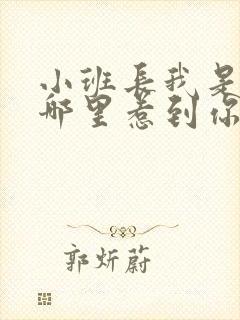 小班长我是
哪里惹到你
郭炘蔚